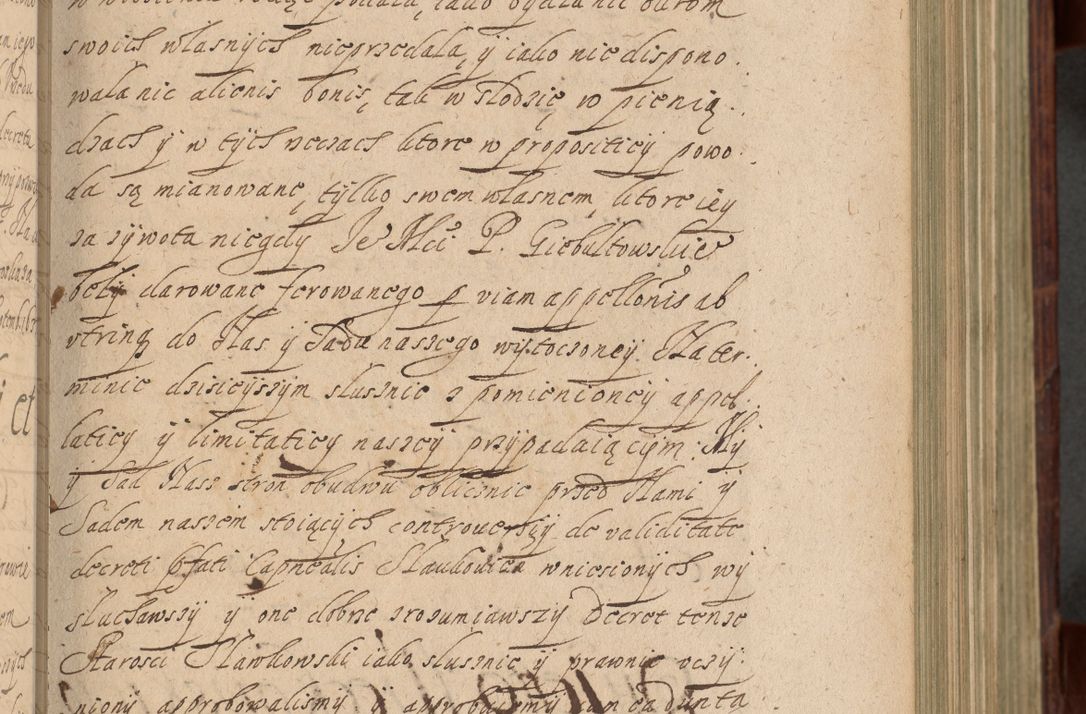 swoich własnych nieprzedała, y iako nie dispono.
wała nic alienis bonis, tak w słodzie, w pienią.
dzach y w tych rzeczach ktore w propositiey powo.
da są mianowane, tylko swem własnem, ktore iey
za zywota niegdy Je Mci P. Giebułtowskie
beły darowane ferowanego p viam appellonis ab
vtrinq do Nas y Sadu naszego wytoczoney. Na ter.
minie dzisieyszym słusznie z pomienioney appel.
latiey y limitatiey naszey przypadaiącym. My
y Sad Nasz stron obudwu oblicznie przed Nami y
Sadem naszem stoiących controuersiy de validitate
decreti pfati Capnealis Sławkovien wniesionych wy
słuchawszy y one dobrze zrozumiawszy Decret tenze
Starosci Sławkowski iako słusznie y prawnie vczy.
niony approbowalismy y approbuiemy